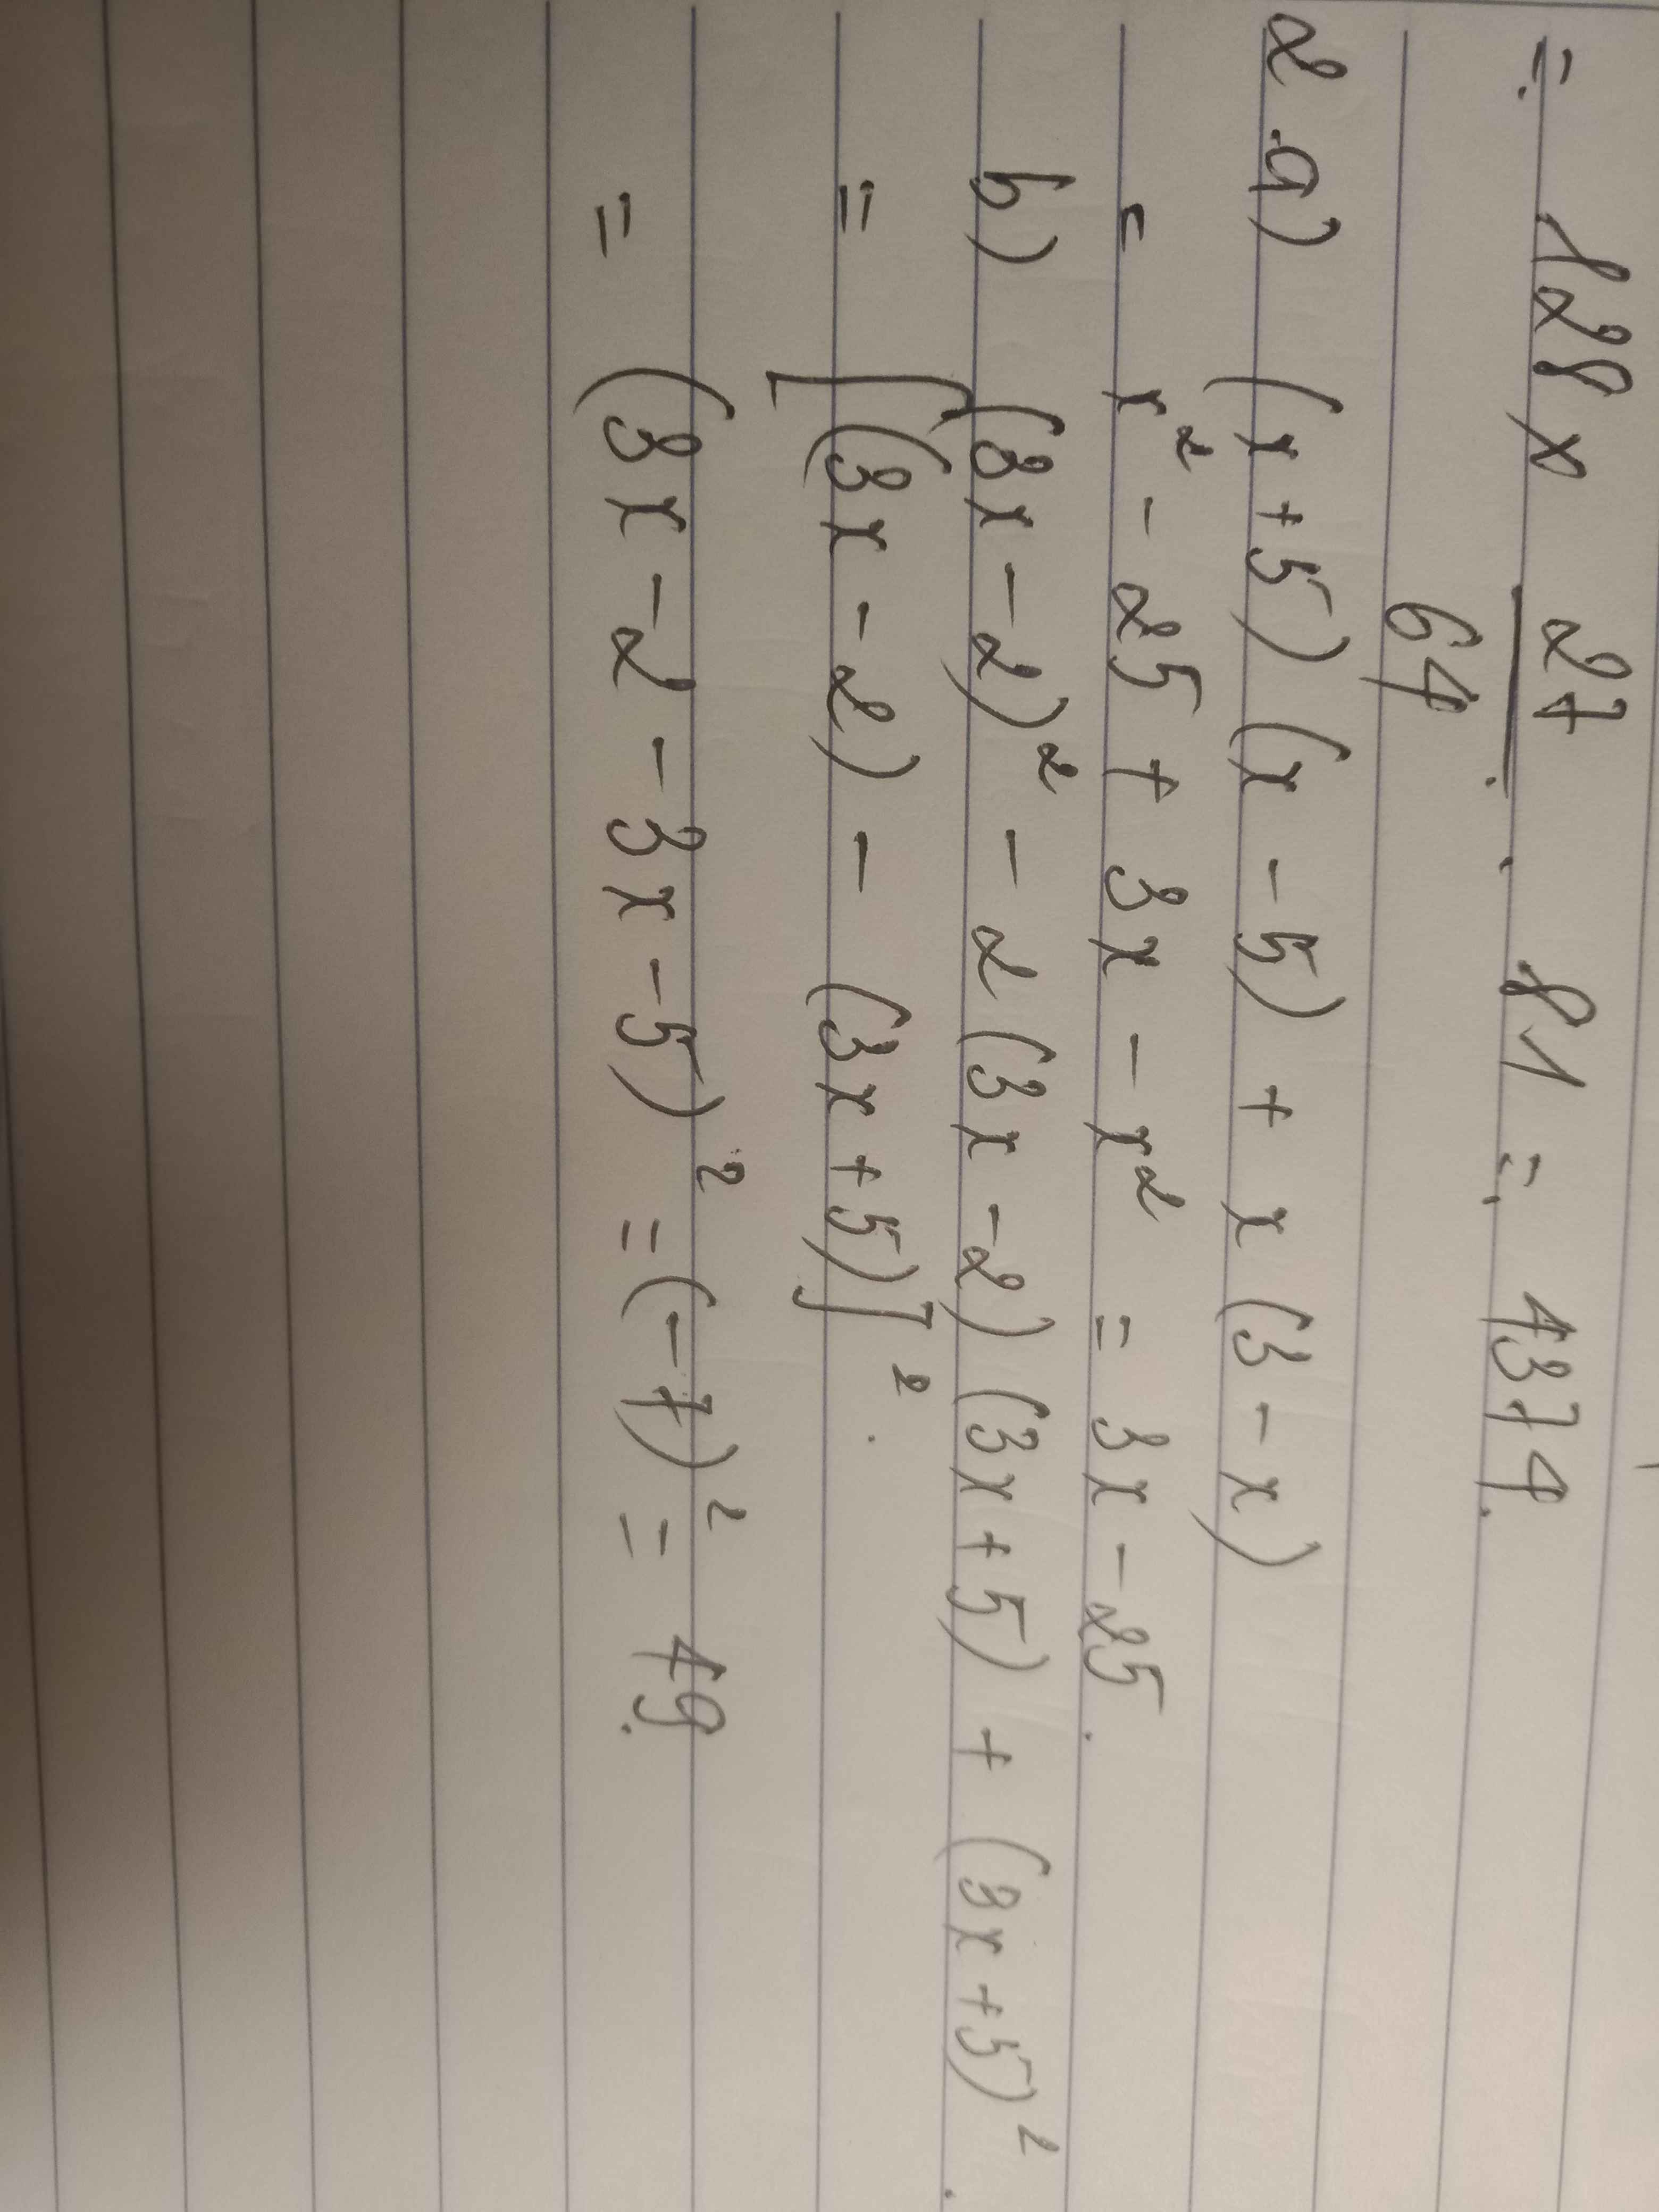 = 128 x 27/64 . 81 = 4374.
2.a) (x + 5) (x - 5) + x (3 - x)
= x² - 25 + 3x - x² = 3x - 25.
b) (3x - 2)² - 2 (3x - 2) (3x + 5) + (3x + 5)².
= [(3x - 2) - (3x + 5)]².
= (3x - 2 - 3x - 5)² = (-7)² = 49.